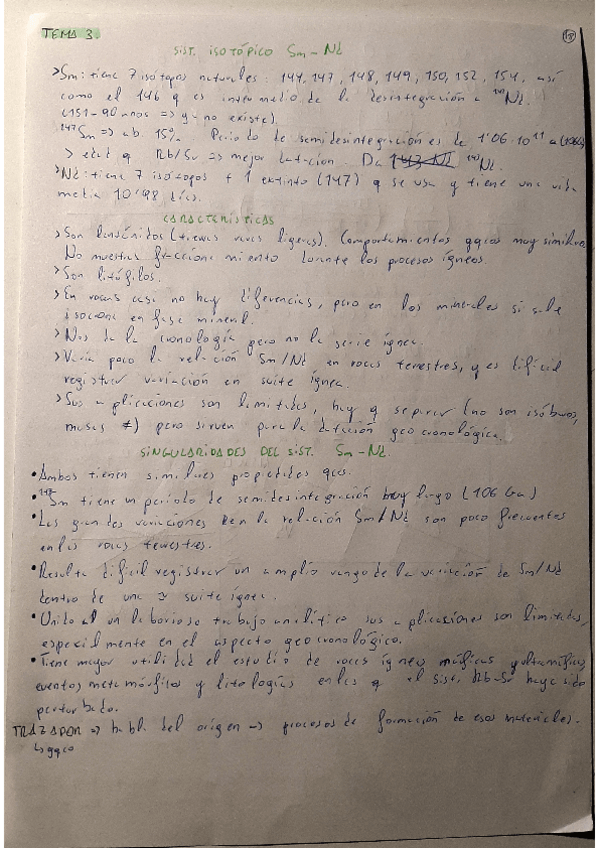 TEMA 3.
SIST. ISOTÓPICO Sm-Nd
>Sm: tiene 7 isótopos naturales: 144, 147, 148, 149, 150, 152, 154, así
como el 146 q es intermedio de la desintegración a Nd.
(151-90 años => ya no existe).
147Sm => ab. 15%. Periodo de semidesintegración es de 1'06·10¹¹ a
> edad q Rb/Sr => mejor datación. Da 143Nd.
>Nd: tiene 7 isótopos + 1 extinto (147) q se usa y tiene una vida
media 10'98 días.
CARACTERÍSTICAS
>Son lantánidos (tierras raras ligeras). Comportamientos gqcos muy similares
No muestran fraccionamiento durante los procesos ígneos.
>Son litófilos.
>En rocas casi no hay diferencias, pero en los minerales si se le
asociana en fase mineral.
>Nos da la cronología pero no la serie ígnea.
>Varía poco la relación Sm/Nd en rocas terrestres, y es difícil
registrar variación en suite ígnea.
>Sus aplicaciones son limitadas, hay q separar (no son isóbaros,
masas ≠) pero sirven para la datación geocronológica.
SINGULARIDADES DEL SIST. Sm-Nd.
•Ambos tienen similares propiedades gqcas.
•147Sm tiene un periodo de semidesintegración muy largo (106 Ga)
•Las grandes variaciones en la relación Sm/Nd son poco frecuentes
en las rocas terrestres.
•Resulta difícil registrar un amplio rango de la variación de Sm/Nd
dentro de una suite ígnea.
•Unido al un laborioso trabajo analítico sus aplicaciones son limitadas,
especialmente en el aspecto geocronológico.
•Tiene mayor utilidad el estudio de rocas ígneas máficas y ultramáficas,
eventos metamórficos y litologías en las q el sist. Rb-Sr haya sido
perturbado.
TRAZADOR => habla del origen => procesos de formación de esos materiales.
↳gqco